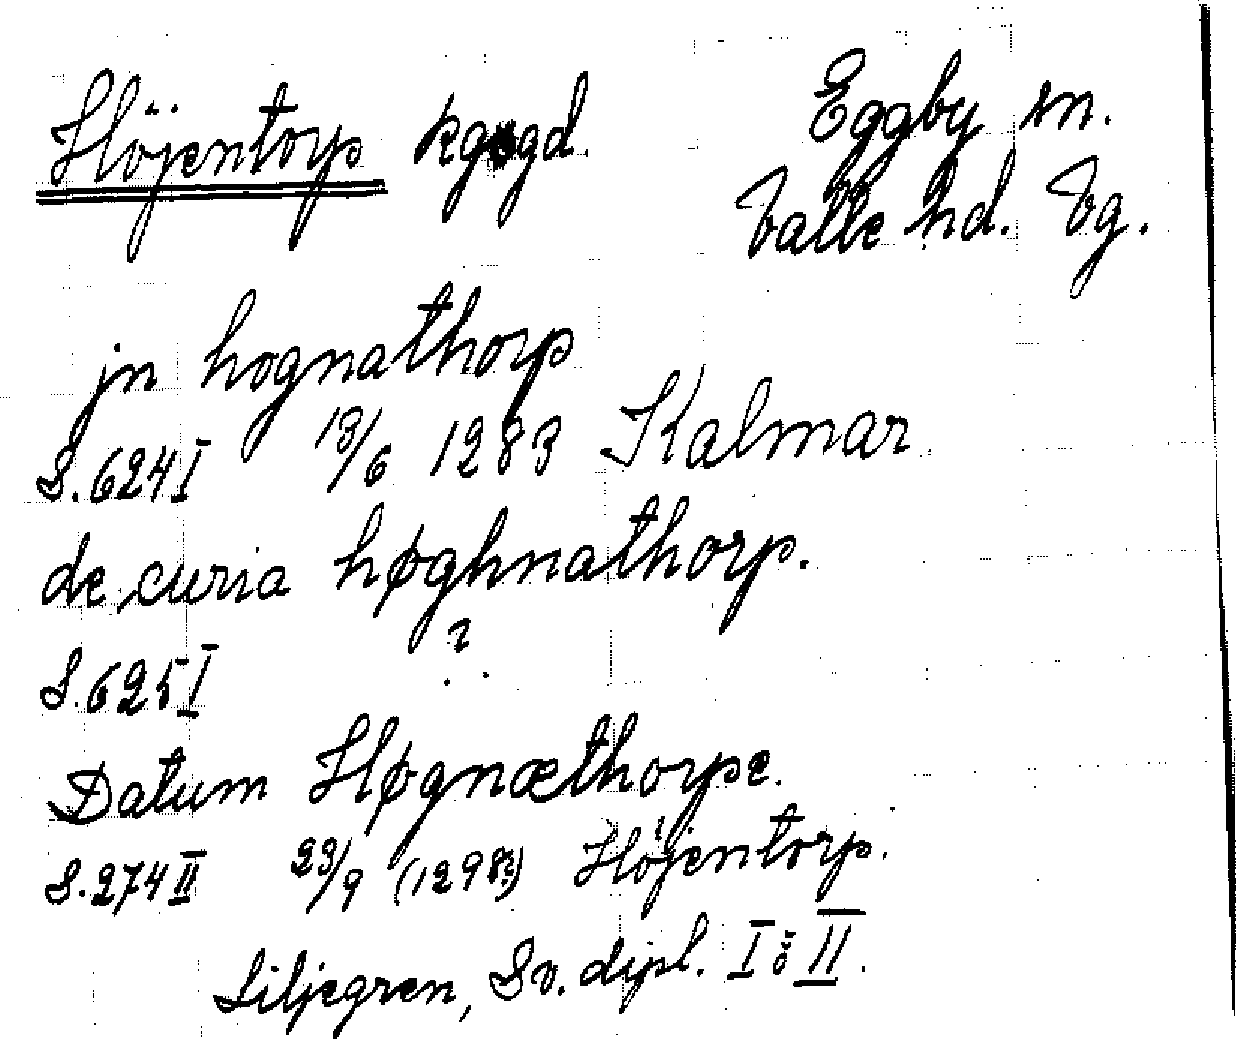 Höjentorp kgsgd. Eggby sn.
Valle hd. Vg.
jn hognathorp
S. 624 I 13/6 1283 Kalmar
de curia høghnathorp.
S. 625 I ?
Datum Høgnæthorpe.
S. 274 II 23/9 (1298?) Höjentorp.
Liljegren, Sv. dipl. I o II.